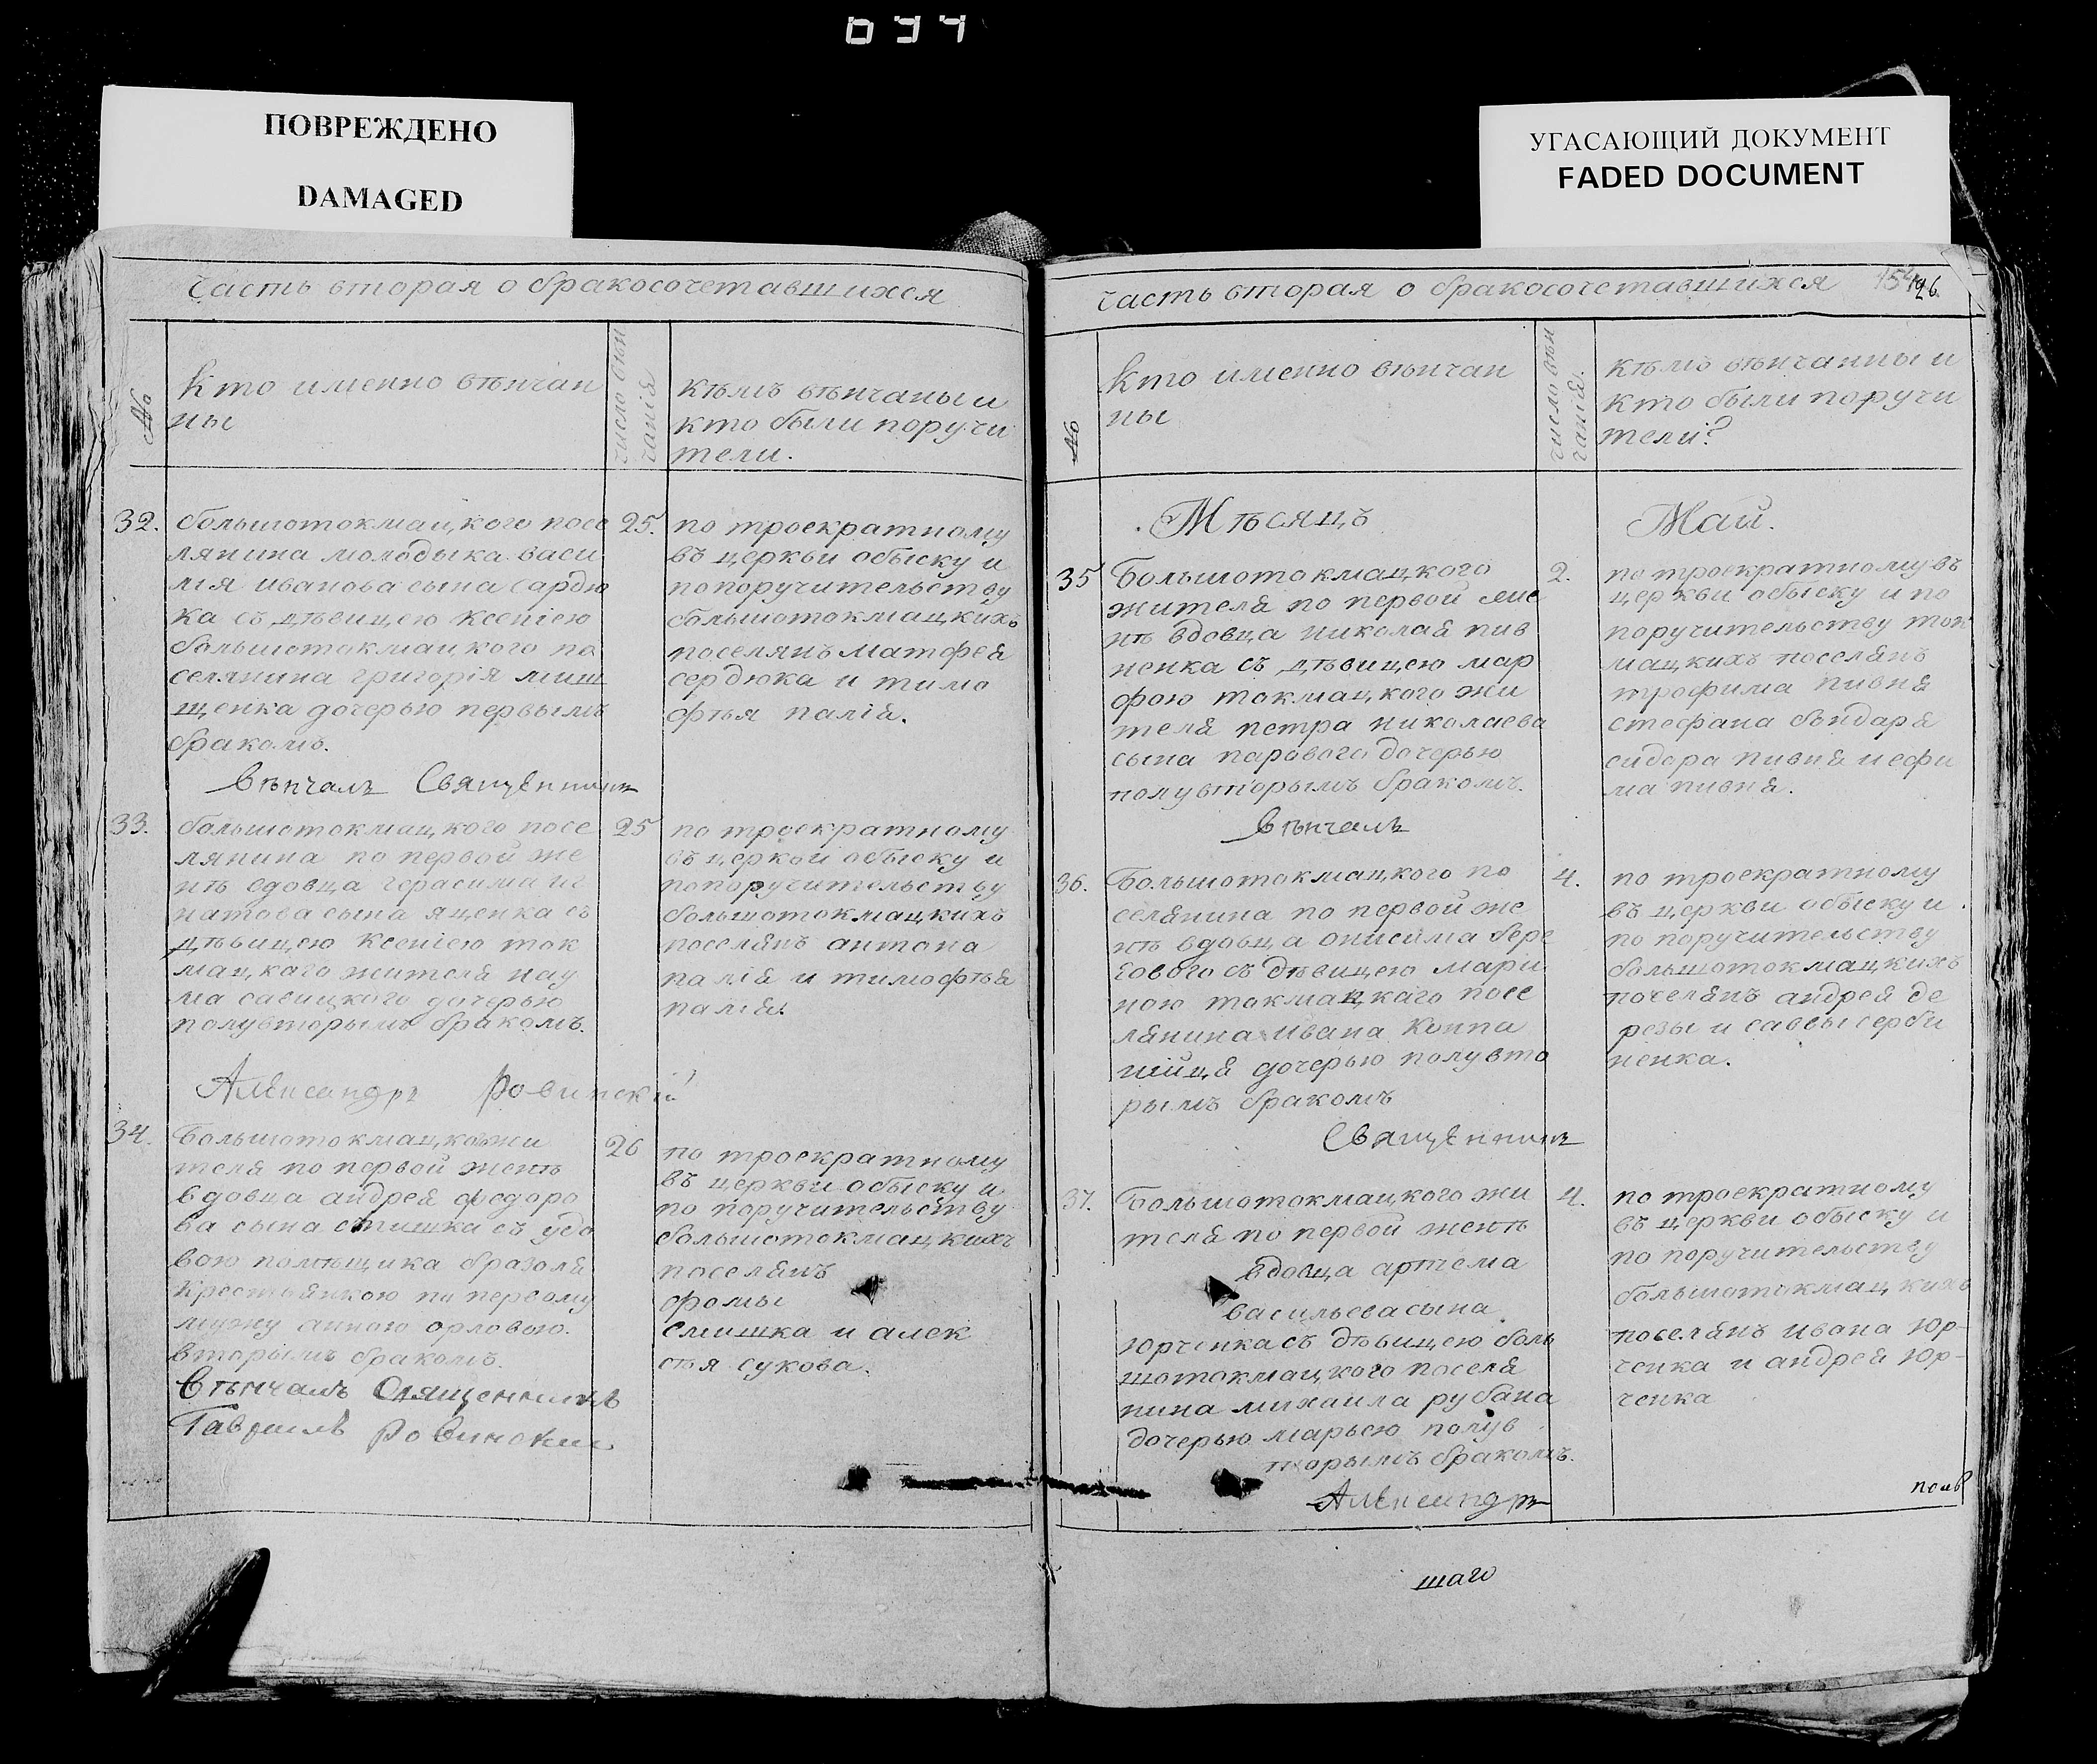 034
ПОВРЕЖДЕНО
DAMAGED
УГАСАЮЩИЙ ДОКУМЕНТ
FADED DOCUMENT
Часть вторая о бракосочетавшихся
№
Кто именно вѣнчан
ны
число вѣн
чанія
кѣмъ вѣнчаны и
кто были поручи
тели.
32.
большотокмацкого посе
лянина молодыка васи
лія иванова сына сардю
ка съ дѣвицею ксеніею
большотокмацкого по
селянина григорія миш
щенка дочерью первымъ
бракомъ.
25.
по троекратному
въ церкви обыску и
по поручительству
большотокмацкихъ
поселянъ матфея
сердюка и тимо
фѣя палія.
Вѣнчалъ Священникъ
33.
большотокмацкого посе
лянина по первой же
нѣ вдовца герасима иг
натова сына яценка съ
дѣвицею ксеніею ток
мацкаго жителя нау
ма савицкого дочерью
полувторымъ бракомъ.
25
по троекратному
въ церкви обыску и
по поручительству
большотокмацкихъ
поселянъ антона
палія и тимофѣя
палія.
Александръ Ровинскій
34.
Большотокмацко жи
теля по первой женѣ
вдовца андрея федоро
ва сына смишка съ удо
вою помѣщика бразоля
крестьянкою по первому
мужу анною орловою.
вторымъ бракомъ.
26
по троекратному
въ церкви обыску и
по поручительству
большотокмацкихъ
поселянъ
фомы
смишка и алек
сѣя сукова.
Вѣнчалъ Священникъ
Гавріилъ Ровинский
часть вторая о бракосочетавшихся
154
126
№
Кто именно вѣнчан
ны
число вѣн
чанія.
кѣмъ вѣнчанны и
кто были поручи
тели?
Мѣсяцъ
Май.
35
Большотокмацкого
жителя по первой же
нѣ вдовца николая пив
ненка съ дѣвицею мар
фою токмацкого жи
теля петра николаева
сына парового дочерью
полувторымъ бракомъ.
2.
по троекратному въ
церкви обыску и по
поручительству ток
мацкихъ поселянъ
трофима пивня
стефана бондаря
сидора пивня и ефи
ма пивня.
Вѣнчалъ
36.
Большотокмацкого по
селянина по первой же
нѣ вдовца онисима бере
зового съ дѣвицею мари
ною токмацкаго посе
лянина ивана коппа
нійця дочерью полувто
рымъ бракомъ
4.
по троекратному
въ церкви обыску и
по поручительству
большотокмацкихъ
поселянъ андрея де
резы и саввы серби
ненка.
Священникъ
37.
Большотокмацкого жи
теля по первой женѣ
вдовца артема
васильева сына
юрченка съ дѣвицею боль
шотокмацкого поселя
нина михаила рубана
дочерью марьею полув
торымъ бракомъ.
4.
по троекратному
въ церкви обыску и
по поручительству
большотокмацкихъ
поселянъ ивана юр-
ченка и андрея юр-
ченка
Александръ
шаго